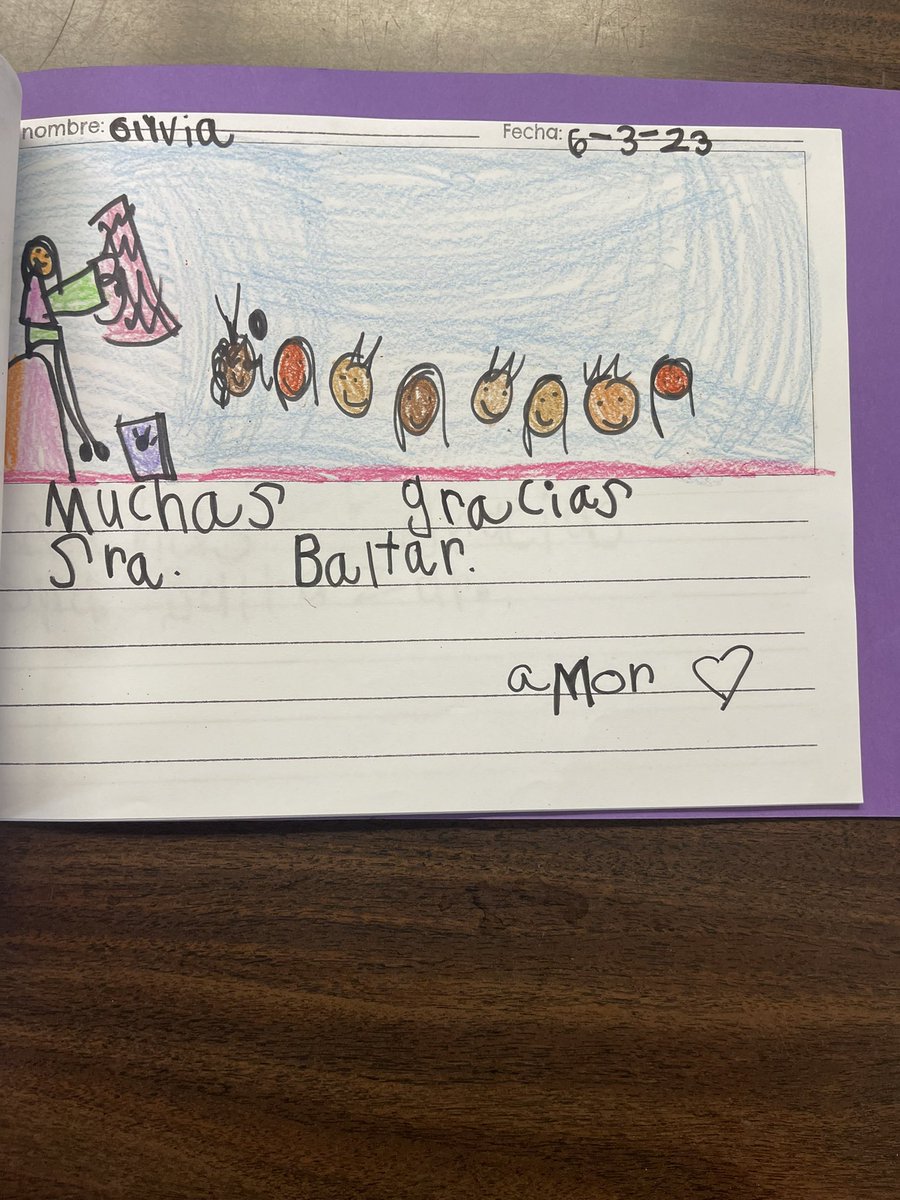 nombre: Olivia Fecha: 6-3-23
Muchas gracias
Sra. Baltar.
amor